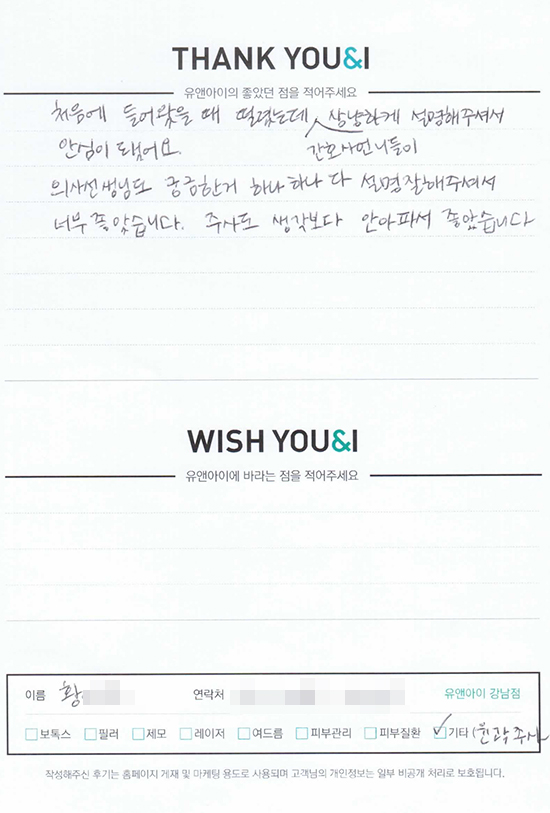 THANK YOU&I
유앤아이의 좋았던 점을 적어주세요
처음에 들어왔을 때 떨렸는데 상냥하게 설명해주셔서
안심이 됐어요. 간호사언니들이
의사선생님도 궁금한거 하나하나 다 설명잘해주셔서
너무 좋았습니다. 주사도 생각보다 안아파서 좋았습니다
WISH YOU&I
유앤아이에 바라는 점을 적어주세요
이름 황 연락처 유앤아이 강남점
보톡스 필러 제모 레이저 여드름 피부관리 피부질환 기타 (윤곽주사
작성해주신 후기는 홈페이지 게재 및 마케팅 용도로 사용되며 고객님의 개인정보는 일부 비공개 처리로 보호됩니다.